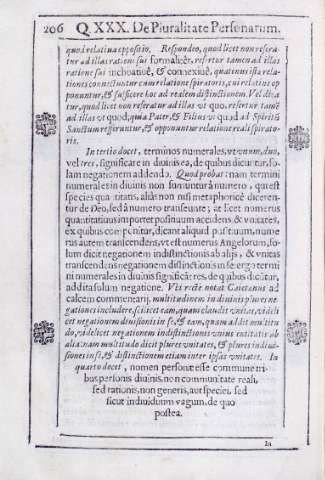 206 Q XXX. De Pluralitate Personarum.
quod relatiua oppositio. Respondeo, quod licet non refera-
tur ad illas ratione sui formaliter, refertur tamen ad illas
ratione sui inchoatiuè, & connexiuè, quatenus ista rela-
tiones connectuntur cum relatione spiratoris, cui relatiuè op
ponuntur, & sufficere hoc ad realem distinctionem. Vel dica
tur, quod licet non referatur ad illas vt quo, refertur tamē
ad illas vt quod, quia Pater, & Filius vt quod ad Spiritū
Sanctum referuntur, & opponuntur relatione reali spirato-
ris.
In tertio docet, terminos numerales, vt vnum, duo,
vel tres, significare in diuinis ea, de quibus dicūtur, so-
lam negationem addendo. Quod probat: nam termini
numerales in diuinis non sumūtur à numero, qui est
species quātitatis, aliàs non nisi metaphoricè diceren-
tur de Deo, sed à numero transeunte; at licet numerus
quantitatiuus importet positiuum accidens & vnitates,
ex quibus componitur, dicant aliquid positiuum, nume
rus autem transcendens, vt est numerus Angelorum, so-
lum dicit negationem indistinctionis ab alijs, & vnitas
transcendens negationem distinctionis in se: ergo termi
ni numerales in diuinis significāt res, de quibus dicūtur,
addita solum negatione. Vt s rectè notat Caietanus ad
calcem commenarij, multitudinem in diuinis plures ne-
gationes includere, scilicet eam, quam claudit vnitas, videli
cet negationem diuisionis in se, & eam, quam addit multitu
do, videlicet negationem indistinctionis vnius entitatis ab
alia: nam multitudo dicit plures vnitates, & plures indiui-
siones in se, & distinctionem etiam inter ipsas vnitates. In
quarto docet, nomen personæ esse commune tri-
bus personis diuinis, non communitate reali,
sed rationis, non generis, aut speciei, sed
sicut indiuiduum vagum, de quo
postea.
In